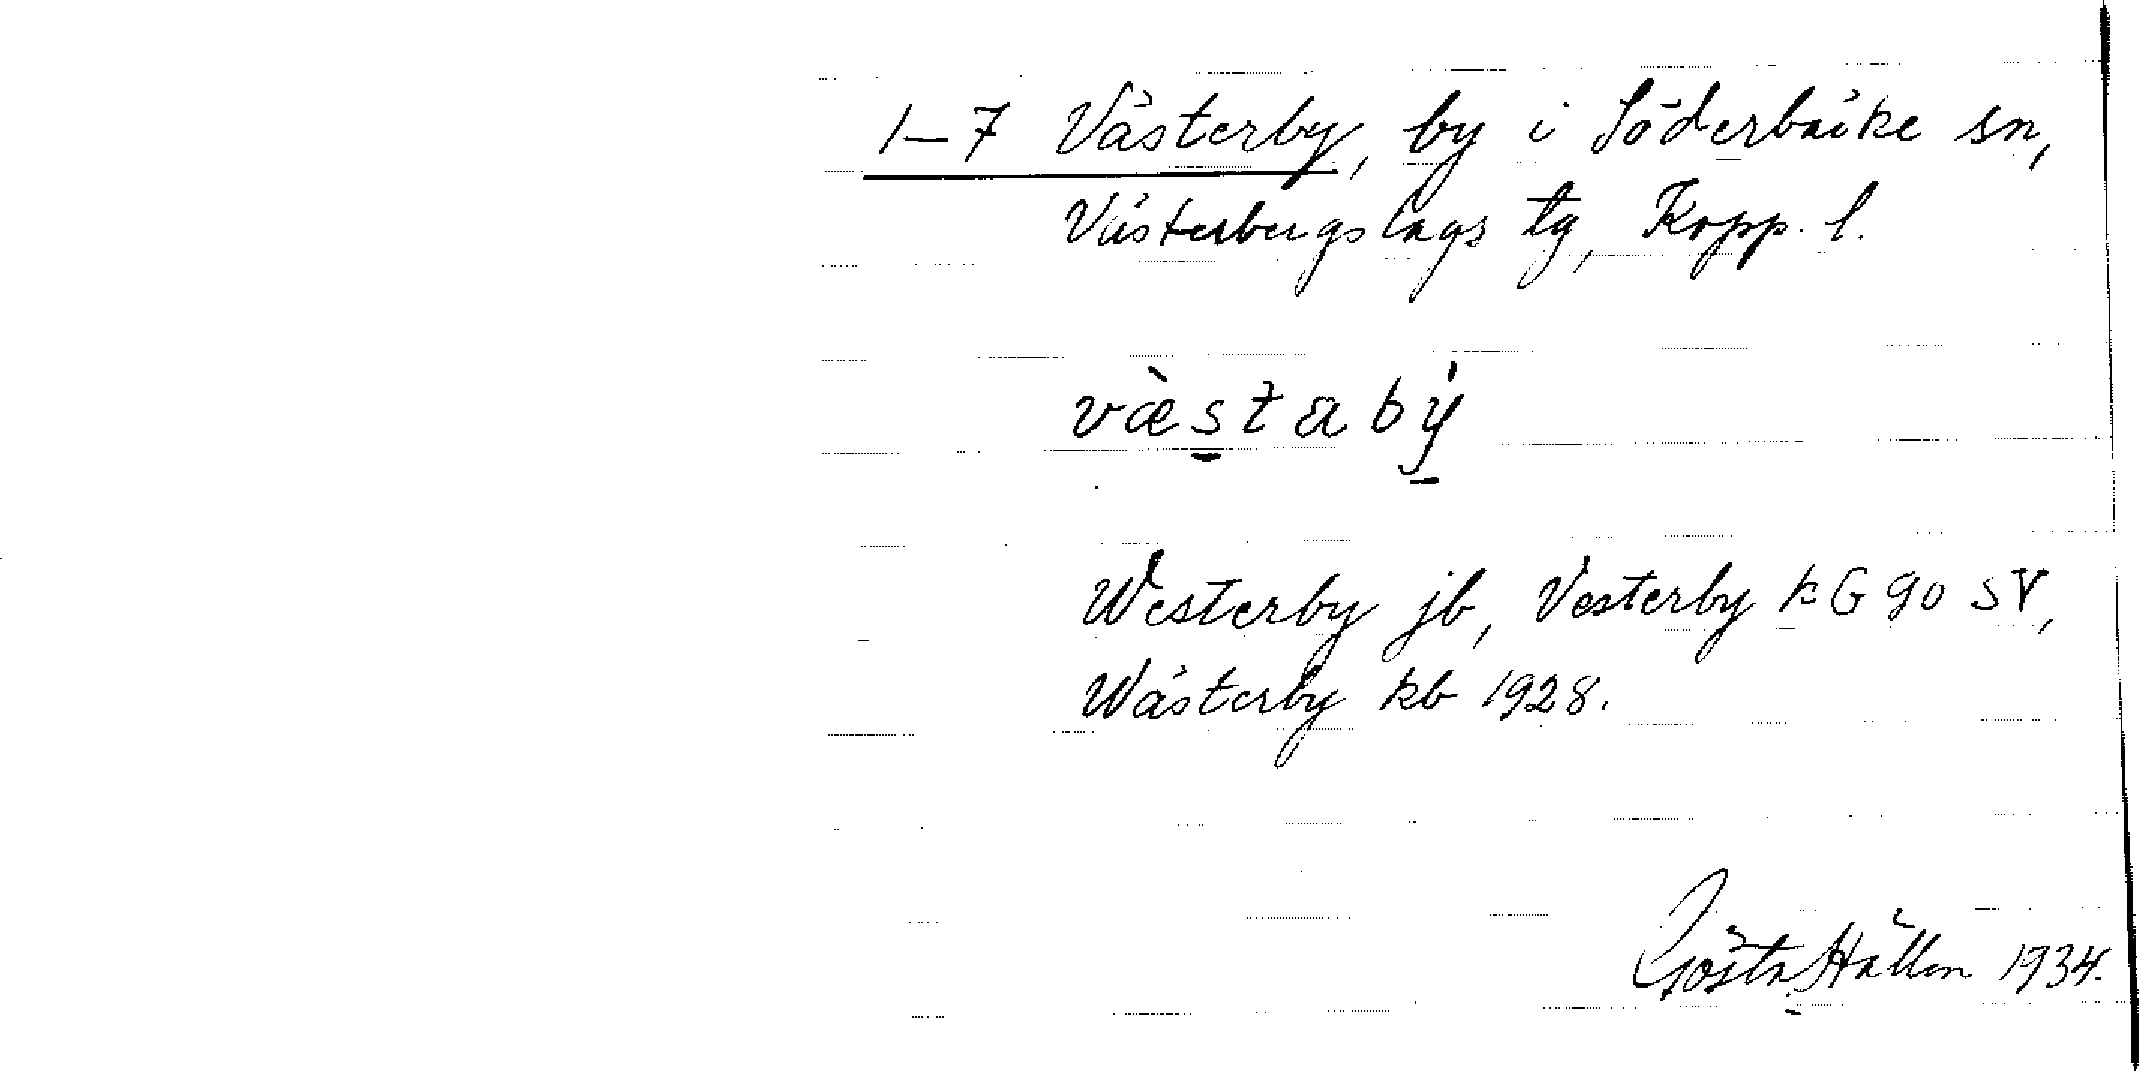 1–7 Västerby, by i Söderbärke sn,
Västerbergslags tg, Kopp. l.
væ̀stabý
Westerby jb, Vesterby kG 90 SV,
Wästerby kb 1928.
Gösta Hällen 1934.